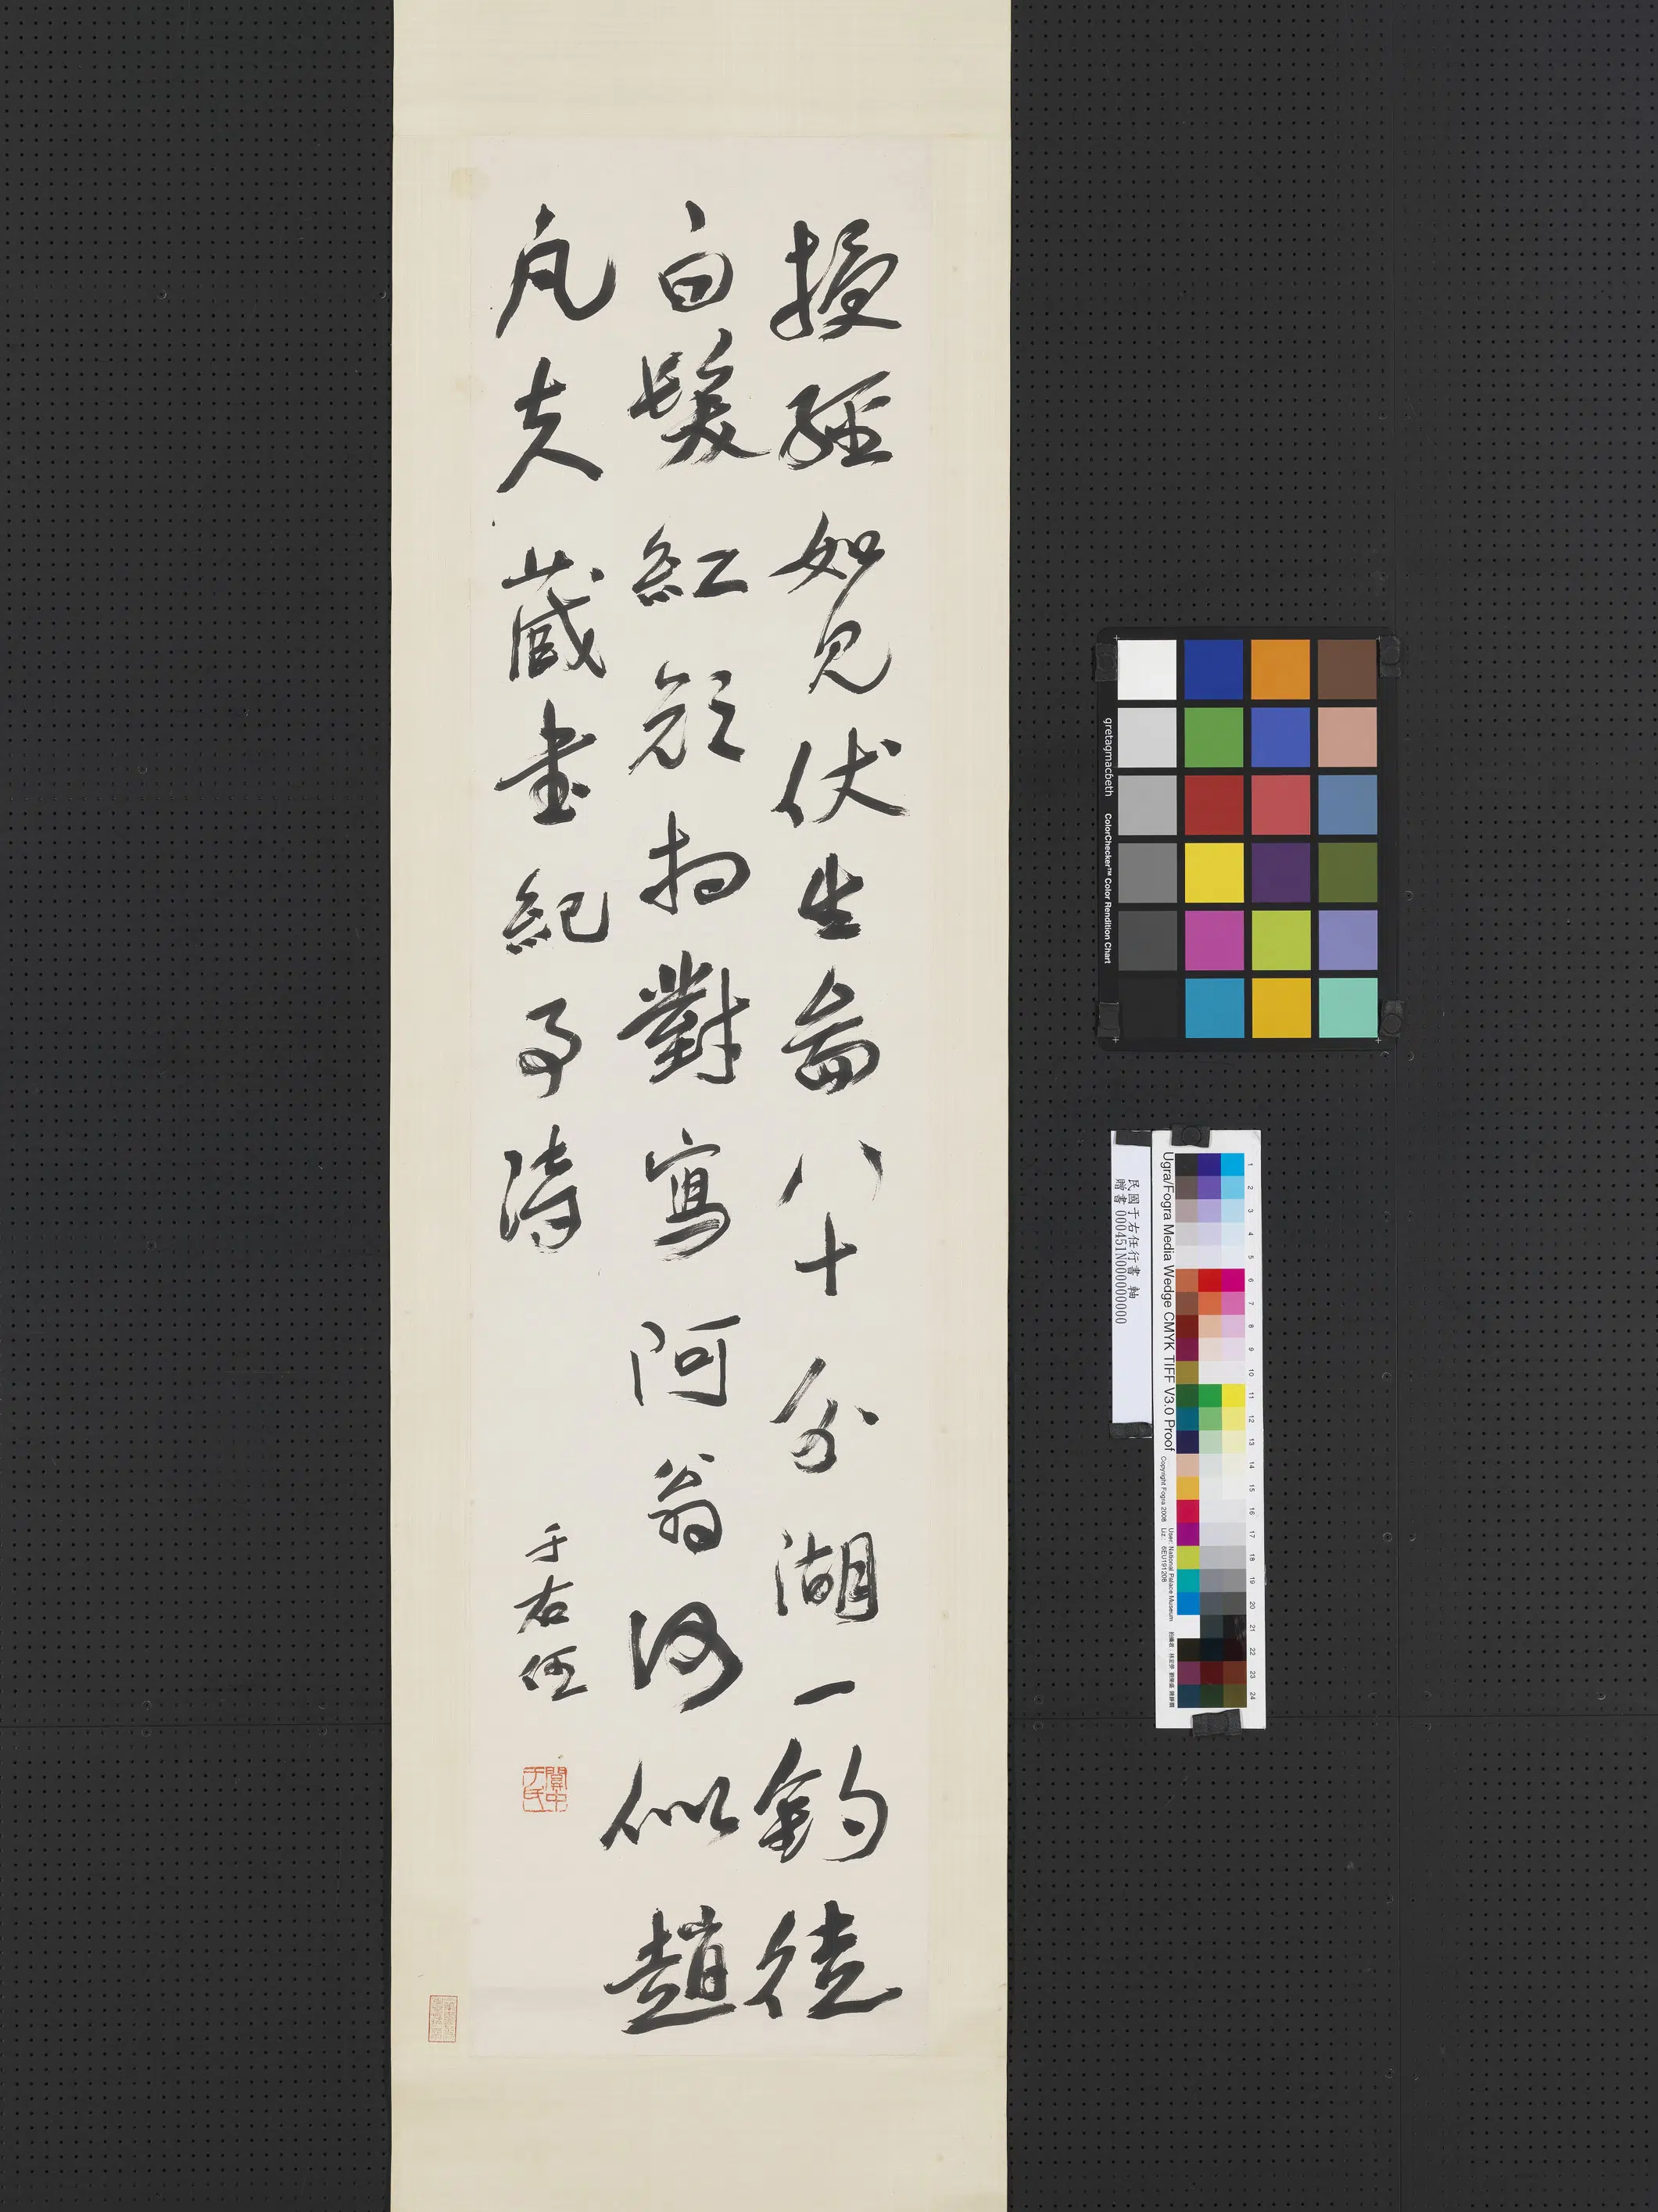 授經如見伏生圖八十分湖一釣徒
白髮紅顏相對寫阿翁何似趙
凡夫 藏書紀事詩
于右任
關中于氏
gretagmacbeth ColorChecker™ Color Rendition Chart
民國于右任行書 軸
贈書 000451N000000000
Ugra/Fogra Media Wedge CMYK TIFF V3.0 Proof
Copyright Fogra 2008
User: National Palace Museum
1 2 3 4 5 6 7 8 9 10 11 12 13 14 15 16 17 18 19 20 21 22 23 24